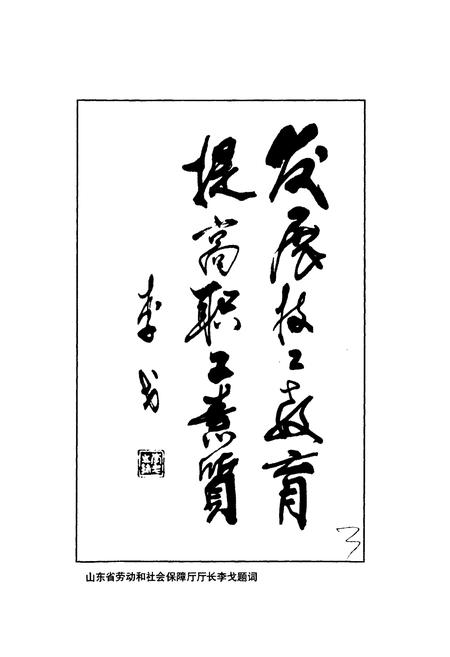 发展技工教育
提高职工素質
李戈
3
山东省劳动和社会保障厅厅长李戈题词